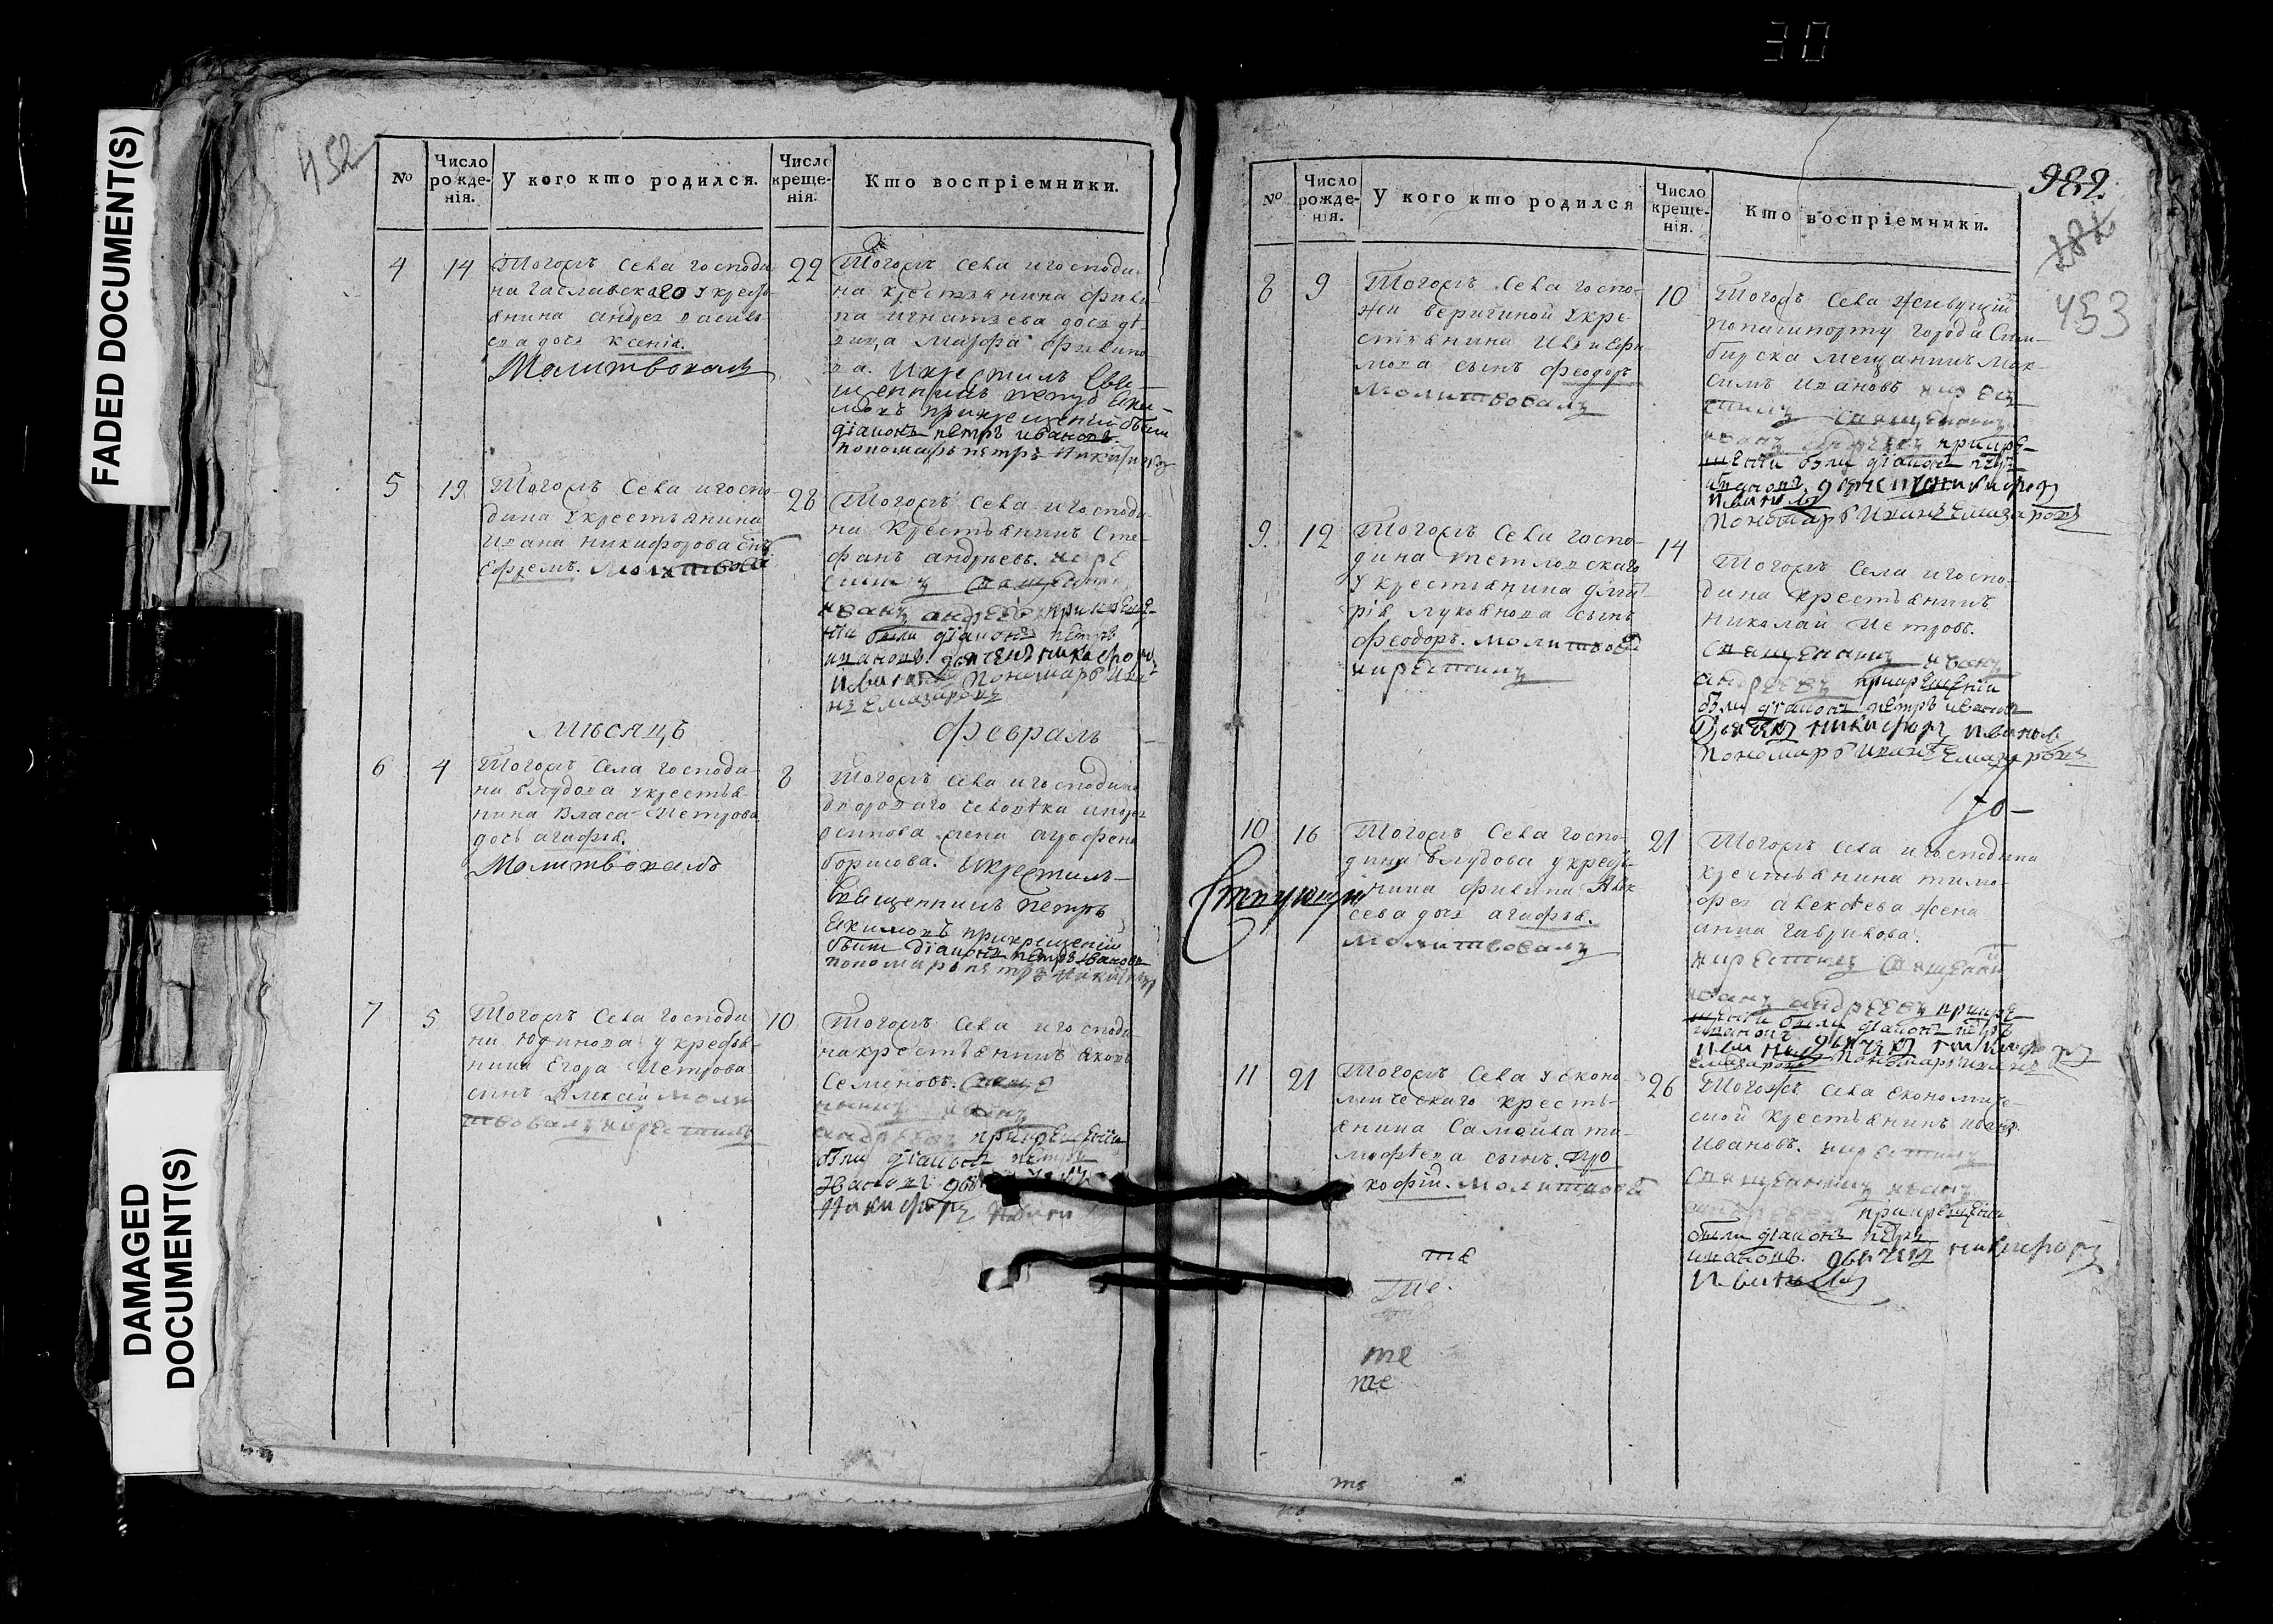 30
FADED DOCUMENT(S)
DAMAGED
DOCUMENT(S)
452
№
Число
рожде-
нія.
У кого кто родился.
Число
креще-
нія.
Кто воспріемники.
4
14
Тогожъ Села господи
на
у кресть
янина андрея василь
ева дочь ксенія.
Молитвовалъ
22
Тогожъ села игосподи
на крестьянина филип
па игнатьева дочь дѣ
вица Марфа филипо
ва. Икрестилъ Свя
щенникъ петръ Яки
мовъ прикрещеніи были
діаконъ петръ ивановъ.
пономарь петръ Никифоровъ
5
19
Тогожъ Села игоспо
дина укрестьянина
Ивана никифорова снъ
Ефремъ. Молитвова
28
Тогожъ села игосподи
на Крестьянинъ Сте
фанъ андреевъ. икре
стилъ Священни
иванъ андреевъ прикреще
ніи были діаконъ петръ
ивановъ. дьячекъ никифоръ
ивановъ Пономарь Ива
нъ Елизаровъ
Мѣсяцъ
Февраль
6
4
Тогожъ Села господи
на блудова укрестья
нина Власа Петрова
дочь агафья.
Молитвовалъ
8
Тогожъ села игосподина
двороваго человѣка андрея
осипова жена агрофена
борисова. Икрестилъ
Священникъ Петръ
Якимовъ прикрещеніи
были діаконъ петръ Ивановъ
пономарь петръ Никифоровъ
7
5
Тогожъ Села господи
на Юдинова у кресть
нина Егора Петрова
сынъ Алексей моли
твовалъ икрестилъ
10
Тогожъ Села игосподи
на крестьянинъ яковъ
Семеновъ. Свяще
нникъ иванъ
андреевъ прикрещеніи
были діаконъ петръ
Ивановъ
Никифоръ Ивано
№
Число
рожде-
нія.
У кого кто родился
Число
креще-
нія.
Кто воспріемники.
989.
453
8
9
Тогожъ Села госпо-
жи веригиной укре
стьянина Ивана Ефи
мова сынъ феодоръ
Молитвовалъ
10
Тогожъ Села живущій
попашпорту города Сим
бирска мещанинъ Мак
симъ Ивановъ икре
стилъ Священникъ
иванъ андреевъ прикре
щеніи были діаконъ петръ
ивановъ. дьячекъ никифоръ
ивановъ
Пономарь Иванъ Елизаровъ
9.
12
Тогожъ Села госпо-
дина тетловскаго
у крестьянина дмит
рія лукоянова сынъ
феодоръ. молитвова
икрестилъ
14
Тогожъ Села игоспо
дина крестьянинъ
николай Петровъ.
Священникъ иванъ
андреевъ прикрещеніи
были діаконъ петръ ивановъ
Дьячекъ никифоръ ивановъ
Пономарь Иванъ Елизаровъ
10
16
Тогожъ Села госпо
дина блудова укресть
нина филипа Алек
сева дочь агафья.
молитвовалъ
21
Тогожъ села игосподина
крестьянина тимо
фея алексѣева жена
анна гаврилова.
икрестилъ Священни
иванъ андреевъ прикре
щеніи были діаконъ петръ
ивановъ
11
21
Тогожъ Села у еконо
мическаго кресть
янина Самойла ти
мофѣева сынъ. про
кофій. молитвова
26
Тогожъ Села Економиче
ской крестьянинъ иванъ
Ивановъ. икрестилъ
Священникъ иванъ
андреевъ прикрещеніи
были діаконъ петръ
ивановъ. дьячекъ никифоръ
ивановъ
те
те
те